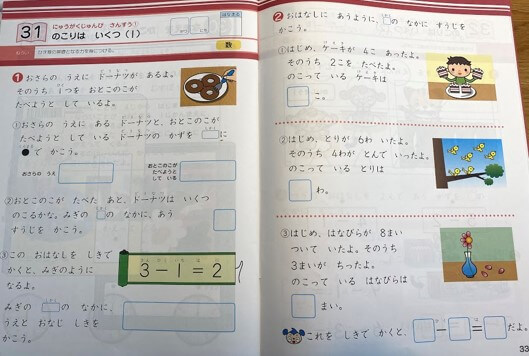 31
にゅうがくじゅんび さんすう①
のこりは いくつ（1）
数
❶おさらの うえに ドーナツが あるよ。
そのうち 1つを おとこのこが
たべようと して いるよ。
①おさらの うえに ある ドーナツと、おとこのこが
たべようと して いる ドーナツの かずを □に
●で かこう。
おさらの うえ
おとこのこが
たべようと
して いる
②おとこのこが たべた あと、ドーナツは いくつ
のこるかな。みぎの □の なかに、あう
すうじを かこう。
③この おはなしを しきで
かくと、みぎのように
なるよ。
3－1＝2
みぎの □の なかに、
うえと おなじ しきを
かこう。
❷おはなしに あうように、□の なかに すうじを
かこう。
①はじめ、ケーキが 4こ あったよ。
そのうち 2こを たべたよ。
のこって いる ケーキは
□こ。
②はじめ、とりが 6わ いたよ。
そのうち 4わが とんで いったよ。
のこって いる とりは
□わ。
③はじめ、はなびらが 8まい
ついて いたよ。そのうち
3まいが ちったよ。
のこって いる はなびらは
□まい。
これを しきで かくと、□－□＝□だよ。
33